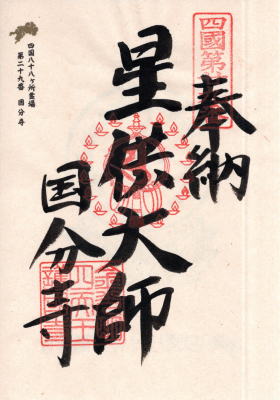 四國第
奉納
星供大師
国分寺
四国八十八ヶ所霊場
第二十九番 国分寺